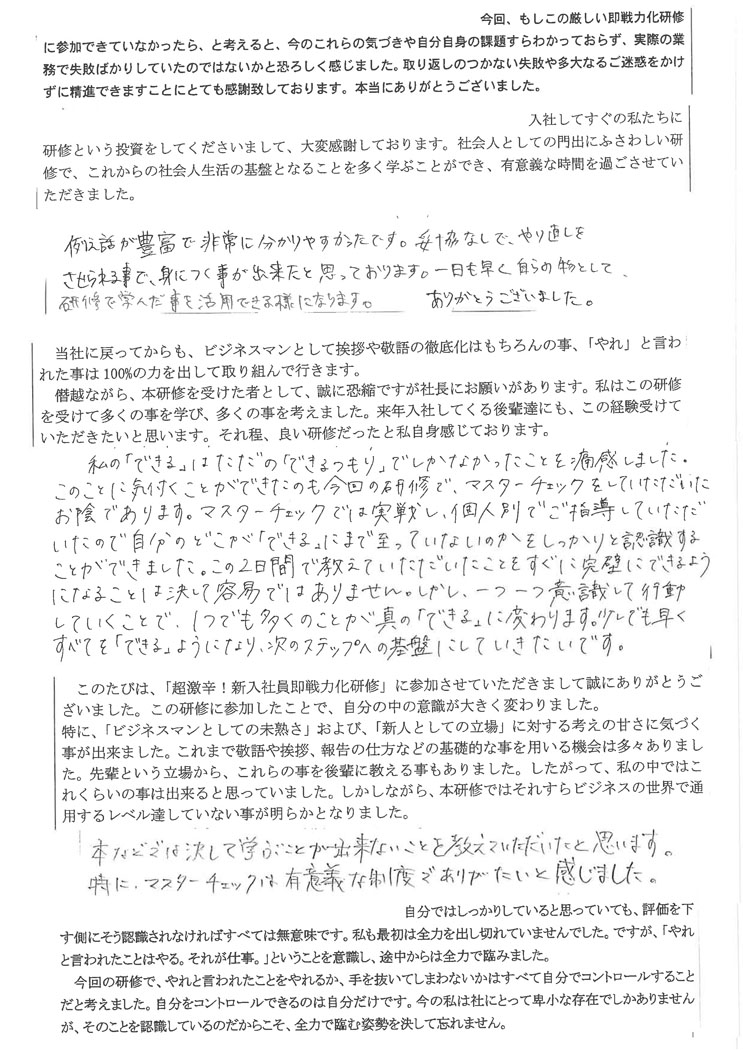 今回、もしこの厳しい即戦力化研修
に参加できていなかったら、と考えると、今のこれらの気づきや自分自身の課題すらわかっておらず、実際の業
務で失敗ばかりしていたのではないかと恐ろしく感じました。取り返しのつかない失敗や多大なるご迷惑をかけ
ずに精進できますことにとても感謝致しております。本当にありがとうございました。
入社してすぐの私たちに
研修という投資をしてくださいまして、大変感謝しております。社会人としての門出にふさわしい研
修で、これからの社会人生活の基盤となることを多く学ぶことができ、有意義な時間を過ごさせてい
ただきました。
例え話が豊富で非常に分かりやすかったです。妥協なしで、やり直しを
させられる事で、身につく事が出来たと思っております。一日も早く自らの物として、
研修で学んだ事を活用できる様になります。 ありがとうございました。
当社に戻ってからも、ビジネスマンとして挨拶や敬語の徹底化はもちろんの事、「やれ」と言わ
れた事は100%の力を出して取り組んで行きます。
僭越ながら、本研修を受けた者として、誠に恐縮ですが社長にお願いがあります。私はこの研修
を受けて多くの事を学び、多くの事を考えました。来年入社してくる後輩達にも、この経験受けて
いただきたいと思います。それ程、良い研修だったと私自身感じております。
私の「できる」はただの「できるつもり」でしかなかったことを痛感しました。
このことに気付くことができたのも今回の研修で、マスターチェックをしていただいた
お陰であります。マスターチェックでは実戦し、個人別でご指導していただ
いたので自分のどこが「できる」にまで至っていないのかをしっかりと認識する
ことができました。この2日間で教えていただいたことをすぐに完璧にできるよう
になることは決して容易ではありません。しかし、一つ一つ意識して行動
していくことで、1つでも多くのことが真の「できる」に変わります。少しでも早く
すべてを「できる」ようになり、次のステップへの基盤にしていきたいです。
このたびは、「超激辛！新入社員即戦力化研修」に参加させていただきまして誠にありがとうご
ざいました。この研修に参加したことで、自分の中の意識が大きく変わりました。
特に、「ビジネスマンとしての未熟さ」および、「新人としての立場」に対する考えの甘さに気づく
事が出来ました。これまで敬語や挨拶、報告の仕方などの基礎的な事を用いる機会は多々ありまし
た。先輩という立場から、これらの事を後輩に教える事もありました。したがって、私の中ではこ
れくらいの事は出来ると思っていました。しかしながら、本研修ではそれすらビジネスの世界で通
用するレベル達していない事が明らかとなりました。
本などでは決して学ぶことが出来ないことを教えていただいたと思います。
特に、マスターチェックは有意義な制度でありがたいと感じました。
自分ではしっかりしていると思っていても、評価を下
す側にそう認識されなければすべては無意味です。私も最初は全力を出し切れていませんでした。ですが、「やれ
と言われたことはやる。それが仕事。」ということを意識し、途中からは全力で臨みました。
今回の研修で、やれと言われたことをやれるか、手を抜いてしまわないかはすべて自分でコントロールすること
だと考えました。自分をコントロールできるのは自分だけです。今の私は社にとって卑小な存在でしかありません
が、そのことを認識しているのだからこそ、全力で臨む姿勢を決して忘れません。